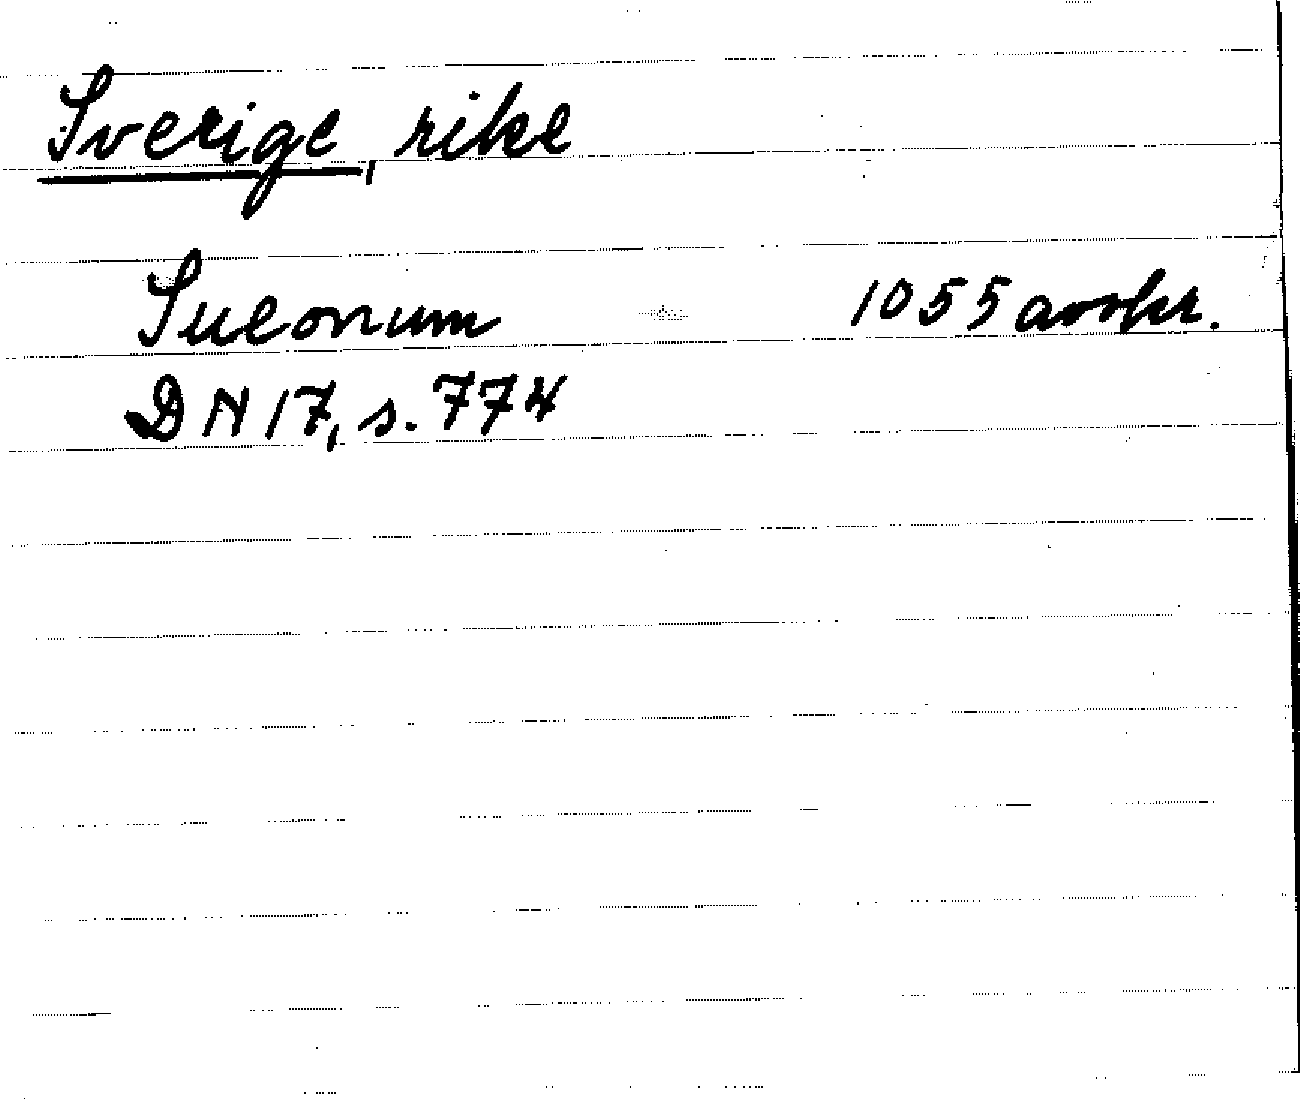 Sverige, rike
Sueonum 1055 avskr.
DN 17, s. 774